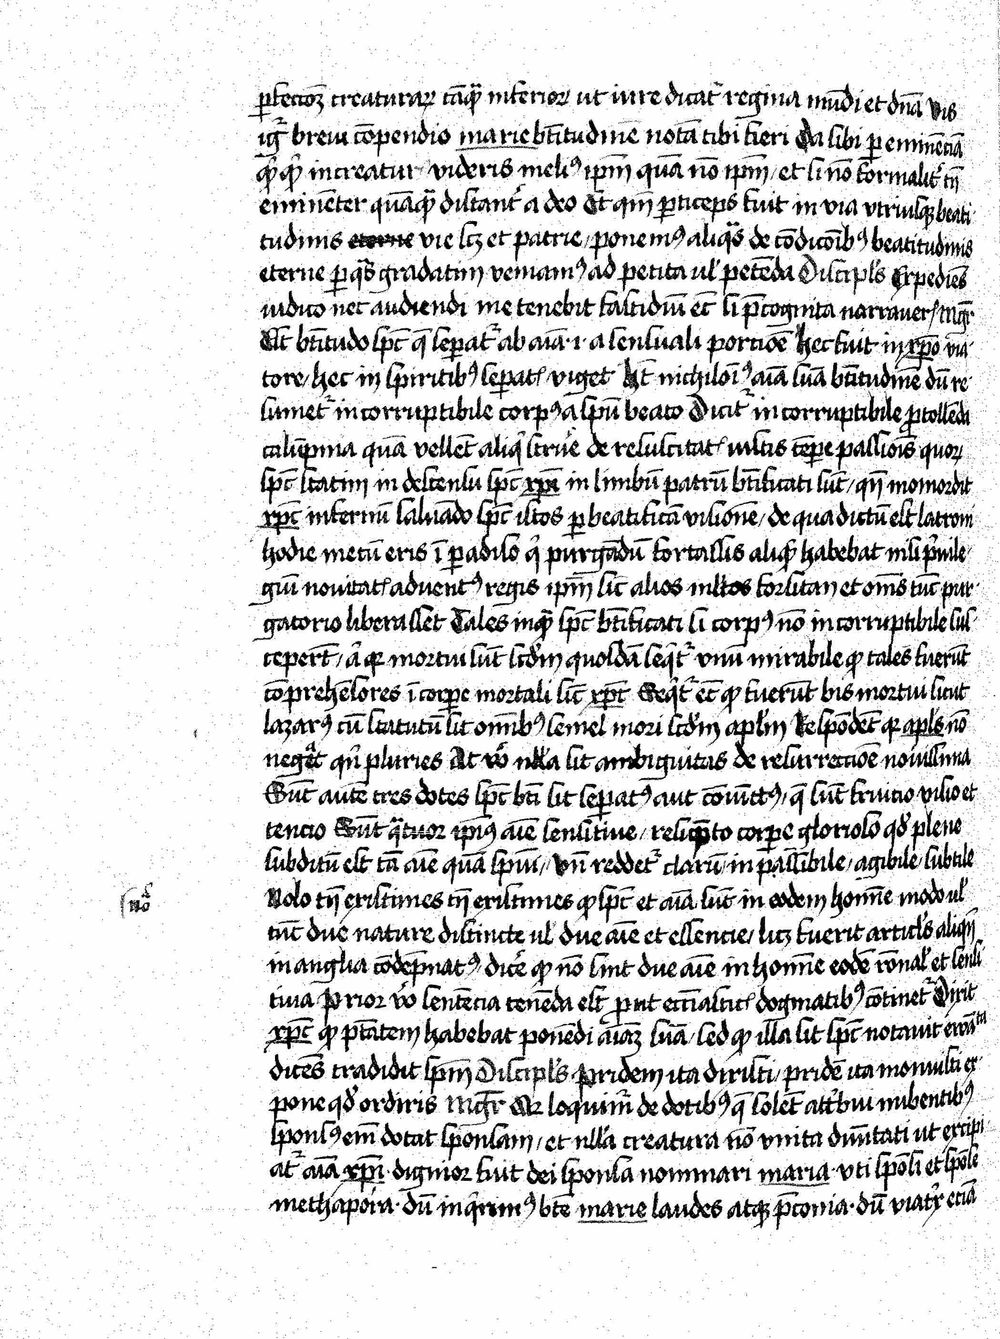 ꝑfectoꝝ creaturaꝝ tāqᷓ inferioꝝ ut iure dicat᷑ regina mūdi et dn̄a Vis
igr̄ breui cōpendio marie bt̄itudinē notā tibi fieri Da sibi ꝑ eminēciā
increatur videris meliꝰ ip̄m quā nō ip̄m / et si nō formalit᷑ tn̄
eminēter quāqᷓ distant᷑ a deo Et qm̄ ꝑticeps fuit in via vtriusqꝫ beati
tudinis eterne vie scꝫ et patrie / ponemꝰ aliqᷓs de cōdicōibꝰ beatitudinis
eterne ꝑ qᷓs gradatim veniamꝰ ad petita ul̓ petēda Discipl̓s Expedies
iudico nec audiendi me tenebit fastidiū ec̄ si p̄cognita narrauer̄ / Mgr̄
Est bt̄itudo sp̄c q̄ sepat᷑ ab aīa ·i· a sensuali portiōe hec fuit in xp̄o via
tore / hec in spiritibꝰ sepat̄ viget Ht̄ nichilōīꝰ aīa suā bt̄itudinē dū re
sumet᷑ incorruptibile corpꝰ a spū beato Dicit᷑ incorruptibile ꝓtollēda
calūpnia quā vellēt aliq̄ struē de resuscitat̄ iustis tēpe passiōis quoꝝ
sp̄c statim in descensu sp̄c xp̄i in limbū patrū bt̄ificati sūt / qn̄ momordit
xp̄c infernū saluādo sp̄c istos ꝑ beatificā visionē / de qua dictū est latroni
hodie mecū eris ī ꝑadiso qͥ purgādū fortassis aliqͩ habebat nisi pͥuile
giū nouitat̄ aduentꝰ regis ip̄m sic alios iustos forsitan et om̄s tūc pur
gatorio liberasset Tales inqᷓ sp̄c bt̄ificati si corpꝰ nō incorruptibile sus
ceperūt / mortui sūt scd̄m quosdā seqͥt᷑ vnū mirabile qͩ tales fuerūt
cōprehēsores ī corpe mortali sic xp̄c Seqͥt᷑ ec̄ qͩ fuerūt bis mortui sicut
lazarꝰ cū statutū sit om̄ibꝰ semel mori scd̄m apl̄m Respōdēt apl̄s nō
negat qn̄ pluries At vͦ nlla sit ambiguitas de resurrectiōe nouissima
Sūt autē tres dotes sp̄c bt̄i sit sepatꝰ aut cōiūctꝰ / q̄ sūt fruicio visio et
tencio Sūt qᷓtuor ip̄iꝰ aīe sensitiue / resūpto corpe glorioso qd̓ plene
subditū est tā aīe quā spiui / Vn̄ reddet᷑ clarū / inpassibile / agibile / subtile
Nolo tn̄ existimes tn̄ existimes qͩ sp̄c et aīa sūt in eodem homīe modo ul̓
tūc due nature distincte ul̓ due aīe et essencie / licꝫ fuerit articl̓s aliqn̄
in anglia cōdēpnatꝰ / dicē qͩ nō sint due aīe in homīe eodē rōnal̓ et sensi
tiua Prior vͦ sentēcia tenēda est ꝓut ecc̄iasticis dogmatibꝰ cōtinet᷑ Dixit
xp̄c qͩ ptātem habebat ponēdi aīaꝫ suā / sed qͩ illa sit sp̄c notauit
dicēs tradidit sp̄m Discipl̓s Pridem ita dixisti / pridē ita monuisti ex
pone qd̓ ordiris Mgr̄ loquim̄ de dotibꝰ q̄ solēt att̓bui nubentibꝰ
sponsꝰ em̄ dotat sponsam / et nlla creatura nō vnita diuītati ut excipi
at᷑ aīa xp̄i · dignior fuit dei sponsa nominari maria · vti spōsi et spōse
methapora · dū inqͥrimꝰ bt̄e marie laudes atqꝫ p̄conia · dū viatͥx eciā
nō